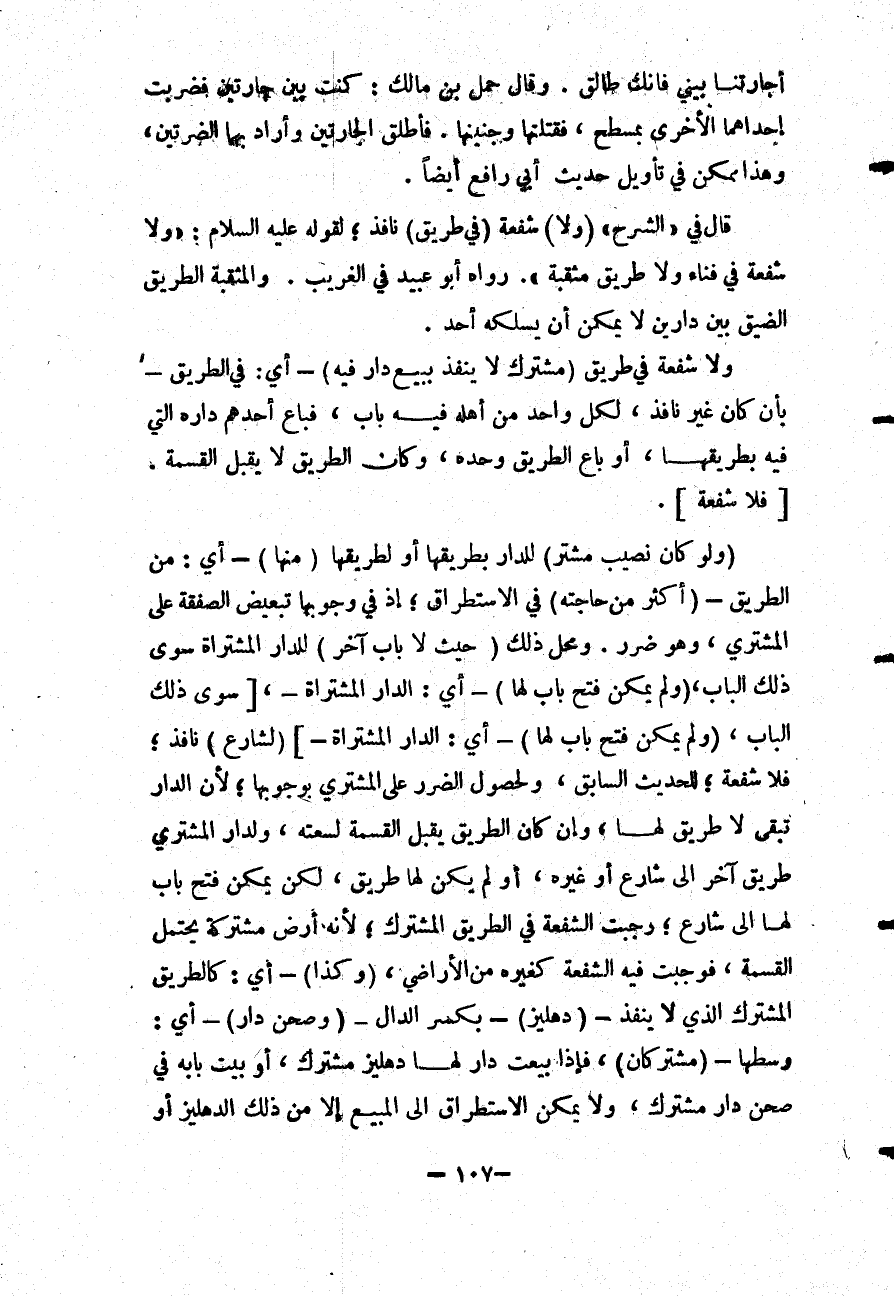 أجارتنـا بيني فانك طالق . وقال حمل بن مالك : كنت بين جارتين فضربت
إحداهما الأخرى بمسطح ، فقتلتها وجنينها . فأطلق الجارتين وأراد بها الضرتين،
وهذا يمكن في تأويل حديث أبي رافع أيضاً .
قال في « الشرح» (ولا) شفعة (في طريق) نافذ ؛ لقوله عليه السلام : «ولا
شفعة في فناء ولا طريق مثقبة ». رواه أبو عبيد في الغريب . والمثقبة الطريق
الضيق بين دارين لا يمكن أن يسلكه أحد .
ولا شفعة في طريق (مشترك لا ينفذ ببيع دار فيه) – أي : في الطريق –
بأن كان غير نافذ ، لكل واحد من أهله فيـــه باب ، فباع أحدهم داره التي
فيه بطريقهـــا ، أو باع الطريق وحده ، وكان الطريق لا يقبل القسمة .
[ فلا شفعة ] .
(ولو كان نصيب مشتر) للدار بطريقها أو لطريقها ( منها ) – أي : من
الطريق – (أكثر من حاجته) في الاستطراق ؛ إذ في وجوبها تبعيض الصفقة على
المشتري ، وهو ضرر . ومحل ذلك ( حيث لا باب آخر ) للدار المشتراة سوى
ذلك الباب،(ولم يمكن فتح باب لها ) – أي : الدار المشتراة – ، [ سوى ذلك
الباب ، (ولم يمكن فتح باب لها ) – أي : الدار المشتراة – ] (لشارع ) نافذ ؛
فلا شفعة ؛ للحديث السابق ، ولحصول الضرر على المشتري بوجوبها ؛ لأن الدار
تبقى لا طريق لهـــا ، وإن كان الطريق يقبل القسمة لسعته ، ولدار المشتري
طريق آخر الى شارع أو غيره ، أو لم يكن لها طريق ، لكن يمكن فتح باب
لهـا الى شارع ؛ وجبت الشفعة في الطريق المشترك ؛ لأنه أرض مشتركة يحتمل
القسمة ، فوجبت فيه الشفعة كغيره من الأراضي ، (وكذا) – أي : كالطريق
المشترك الذي لا ينفذ – ( دهليز) – بكسر الدال – ( وصحن دار) – أي :
وسطها – (مشتركان) ، فإذا بيعت دار لهـــا دهليز مشترك ، أو بيت بابه في
صحن دار مشترك ، ولا يمكن الاستطراق الى المبيع إلا من ذلك الدهليز أو
– ١٠٧ –